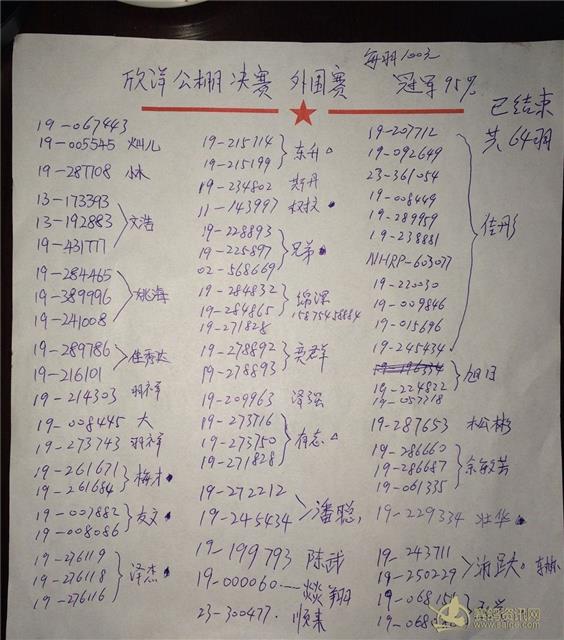 每羽100元
欣洋公棚决赛 外围赛 冠军95%
已结束
共64羽
19-067443
19-005545 灿儿
19-287108 小林
13-173393
13-192883 文浩
19-431777
19-284465
19-389996 姚海
19-241008
19-289786
19-216101
19-214303 羽祥
19-008445 大
19-273743 羽祥
19-261671 梅才
19-261684
19-007882 友文
19-008086
19-276119
19-276118 泽杰
19-276116
19-215714
19-215199 东升
19-234802 斯丹
11-143997
19-228893
19-225897 兄弟
02-568669
19-284832 绵深
19-284865 15875458884
19-271828
19-278892 奕群
19-278893
19-209963 泽强
19-273716
19-273750 有志
19-271828
19-272212
19-245434 潘聪
19-199793 陈武
19-000060 燚翔
23-300477 顺来
19-207712
19-092649
23-361054
19-008449
19-289959
19-238881 佳彤
NHRP-603077
19-220030
19-009846
19-015696
19-245434
19-224822 旭日
19-057318
19-287653 松彬
19-286660
19-286687 余敏芳
19-061335
19-229334 壮华
19-243711
19-250229
19-068151
赛鸽资讯网
www.saige.com